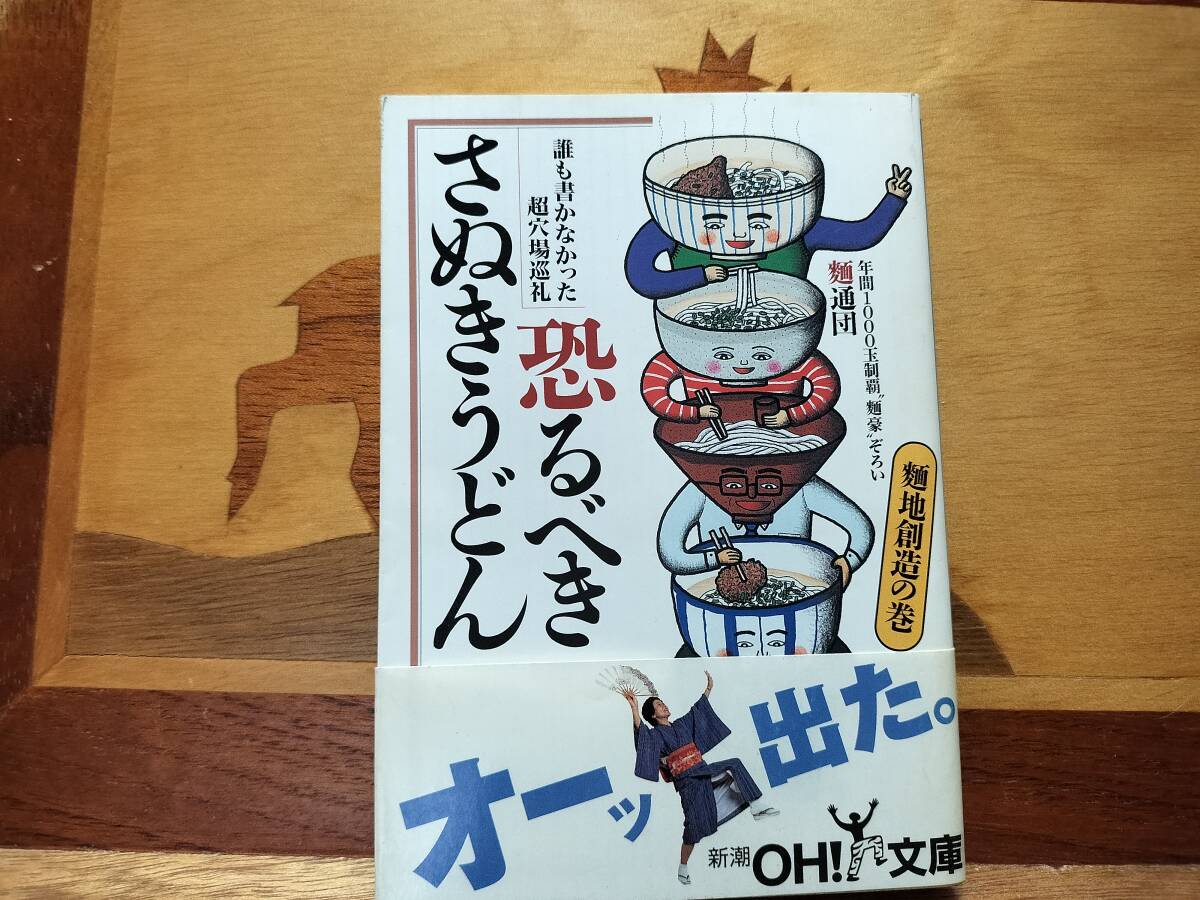 誰も書かなかった
超穴場巡礼
恐るべき
さぬきうどん
年間1000玉制覇〝麵豪〟ぞろい
麵通団
麵地創造の巻
オーッ出た。
新潮OH!文庫